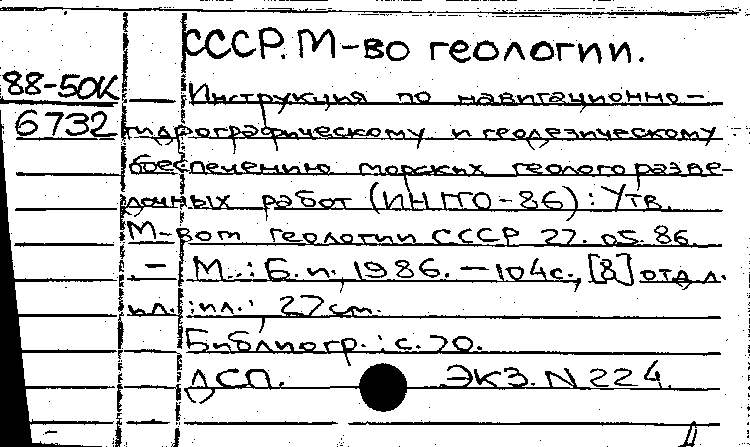 СССР. М-во геологии.
88-50К
6732
Инструкция по навигационно-
гидрографическому и геодезическому
обеспечению морских геологоразве-
дочных работ (ИНГГО-86): Утв.
М-вом геологии СССР 27.05.86.
.- М.: Б.и., 1986. - 104с., [8] отд.л.
ил.: ил.; 27см.
Библиогр.: с. 70.
ДСП. ЭКЗ. N 224.
Д